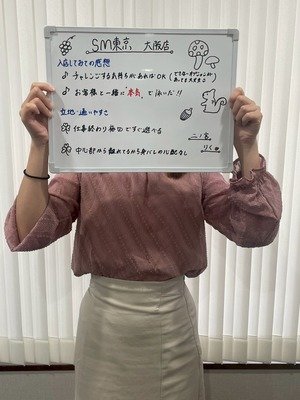 SM東京 大阪店
入店しての感想
♪ チャレンジする気持ちがあればOK
♪ お客様と一緒に"本気"で泳いだ!!
立地・通いやすさ
仕事終わり梅田ですぐ遊べる
中心部から離れてるから身バレの心配なし